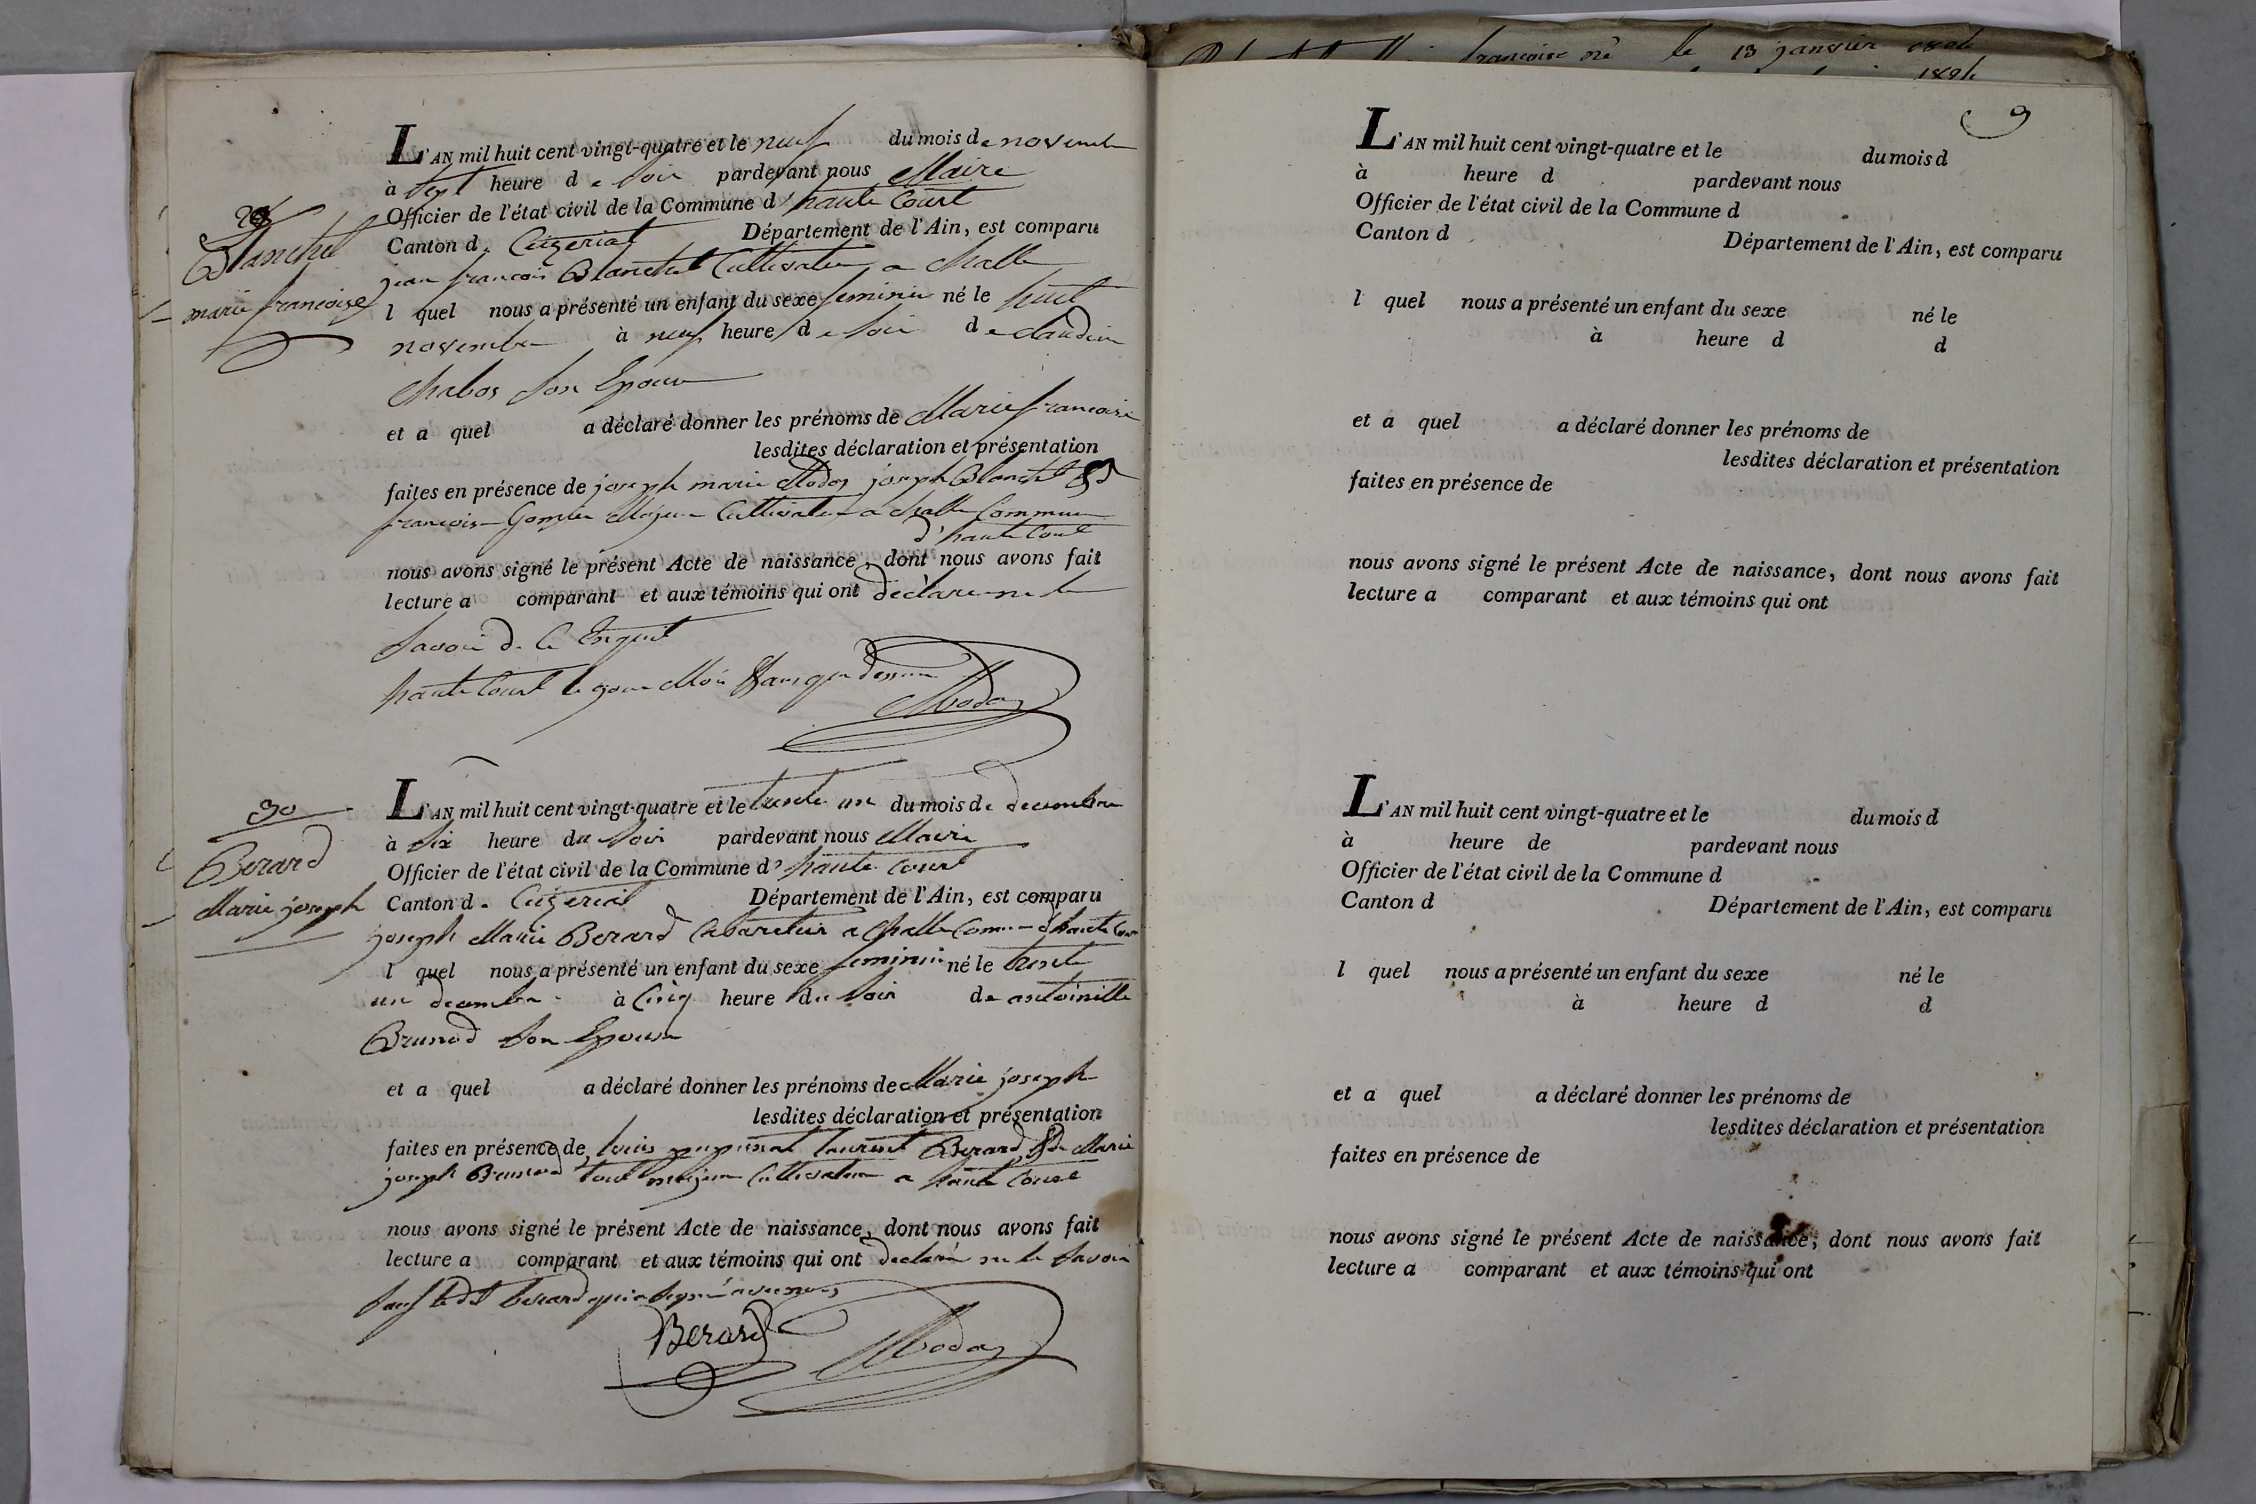 29
Blanchet
marie françoise
L'AN mil huit cent vingt-quatre et le neuf du mois de novembre
à sept heure de soir pardevant nous Maire
Officier de l'état civil de la Commune d'haute Court
Canton de Ceizeriat Département de l'Ain, est comparu
jean françois Blanchet Cultivateur a Challe
l quel nous a présenté un enfant du sexe feminin né le huit
novembre à neuf heure de soir de claudine
Chabos son Epouse
et a quel a déclaré donner les prénoms de Marie françoise
lesdites déclaration et présentation
faites en présence de joseph marie Modas joseph Blanchet &
françois Majeur Cultivateur a Challe Commune
d'haute Court
nous avons signé le présent Acte de naissance, dont nous avons fait
lecture a comparant et aux témoins qui ont déclaré ne le
savoir de ce Enquit
haute Court le jour Mois & ans que dessus
Moda
30
Berard
Marie joseph
L'AN mil huit cent vingt-quatre et le trente un du mois de decembre
à six heure du soir pardevant nous Maire
Officier de l'état civil de la Commune d'haute Court
Canton de Ceizeriat Département de l'Ain, est comparu
joseph Marie Berard Cabaretier a Challe Commune d'haute Cour
l quel nous a présenté un enfant du sexe feminin né le trente
un decembre à Cinq heure du soir de antoinette
Brunod son Epouse
et a quel a déclaré donner les prénoms de Marie joseph
lesdites déclaration et présentation
faites en présence de louis laurent Berard & Marie
joseph Brunod tout majeur Cultivateur a haute Court
nous avons signé le présent Acte de naissance, dont nous avons fait
lecture a comparant et aux témoins qui ont declaré ne le savoir
sauf ledit berard qui a signé avec nous
Berard Moda
françoise né le 13 janvier
1824
9
L'AN mil huit cent vingt-quatre et le du mois d
à heure d pardevant nous
Officier de l'état civil de la Commune d
Canton d Département de l'Ain, est comparu
l quel nous a présenté un enfant du sexe né le
à heure d d
et a quel a déclaré donner les prénoms de
lesdites déclaration et présentation
faites en présence de
nous avons signé le présent Acte de naissance, dont nous avons fait
lecture a comparant et aux témoins qui ont
L'AN mil huit cent vingt-quatre et le du mois d
à heure de pardevant nous
Officier de l'état civil de la Commune d
Canton d Département de l'Ain, est comparu
l quel nous a présenté un enfant du sexe né le
à heure d d
et a quel a déclaré donner les prénoms de
lesdites déclaration et présentation
faites en présence de
nous avons signé le présent Acte de naissance, dont nous avons fait
lecture a comparant et aux témoins qui ont